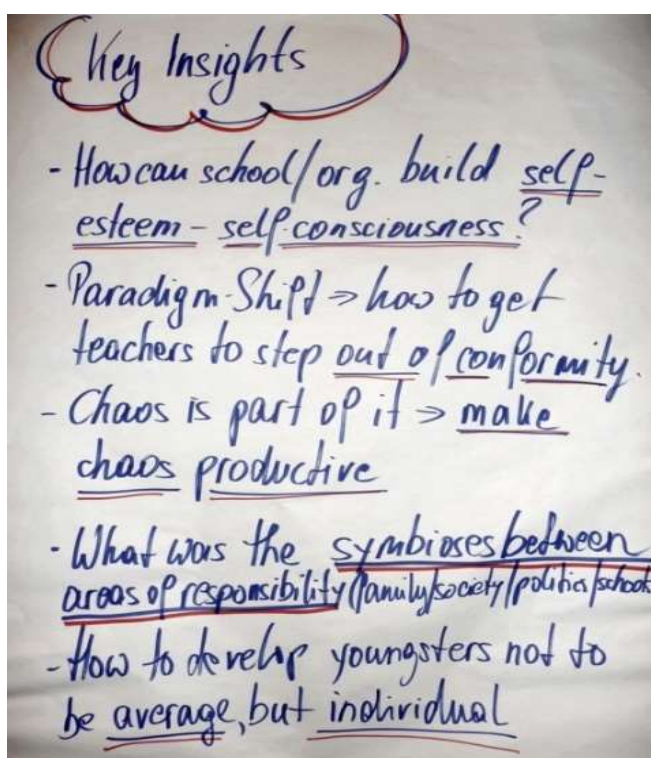 Key Insights
- How can school/org. build self-
esteem - self-consciousness?
- Paradigm-Shift → how to get
teachers to step out of conformity.
- Chaos is part of it → make
chaos productive
- What was the symbioses between
areas of responsibility (family/society/politics/school
- How to develop youngsters not to
be average, but individual